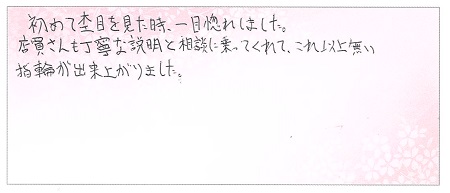 初めて杢目を見た時、一目惚れしました。
店員さんも丁寧な説明と相談に乗ってくれて、これ以上無い
指輪が出来上がりました。